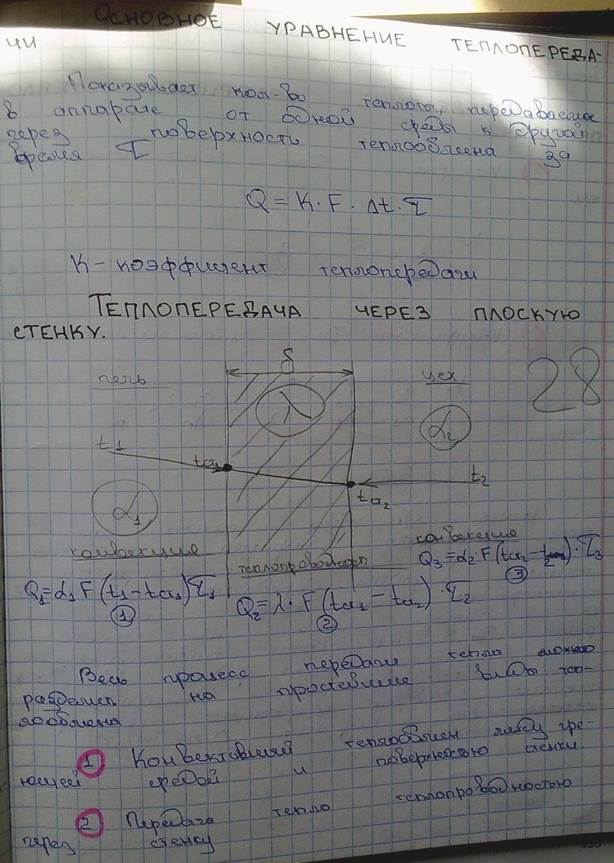 ОСНОВНОЕ УРАВНЕНИЕ ТЕПЛОПЕРЕДА-
ЧИ
Показывает кол-во теплоты, передаваемое
в аппарате от одной среды к другой
через поверхность теплообмена за
время τ
Q = K · F · Δt · τ
K – коэффициент теплопередачи
ТЕПЛОПЕРЕДАЧА ЧЕРЕЗ ПЛОСКУЮ
СТЕНКУ.
δ
печь
цех
28
λ
α₂
t1
tст₁
t₂
tст₂
α₁
конвекция
теплопроводность
конвекция
Q₁=α₁F(t₁–tст₁)τ₁
①
Q₂=λ·F(tст₁–tст₂)·τ₂
②
Q₃=α₂·F(tст₂–t₂)·τ₃
③
Весь процесс передачи тепла можно
разделить на простейшие виды теп-
лообмена
1 Конвективный теплообмен между гре-
ющей средой и поверхностью стенки
2 Передача тепло теплопроводностью
через стенку